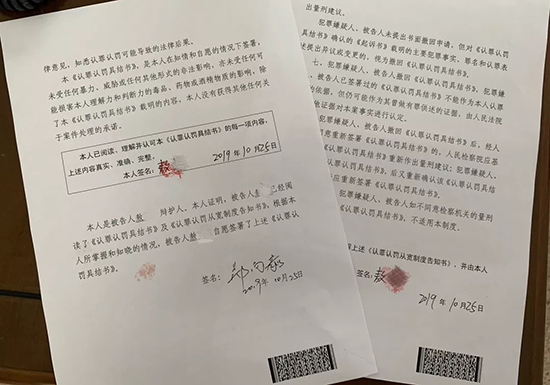 律意见，知悉认罪认罚可能导致的法律后果。
本《认罪认罚具结书》，是本人在知情和自愿的情况下签署，
未受任何暴力、威胁或任何其他形式的非法影响，亦未受任何可
能损害本人理解力和判断力的毒品、药物或酒精物质的影响，除
了本《认罪认罚具结书》载明的内容，本人没有获得其他任何关
于案件处理的承诺。
本人已阅读、理解并认可本《认罪认罚具结书》的每一项内容，
上述内容真实、准确、完整。
本人签名：敖
2019年10月25日
本人是被告人敖 辩护人，本人证明，被告人 已经阅
读了《认罪认罚具结书》及《认罪认罚从宽制度告知书》，根据本
人所掌握和知晓的情况，被告人敖 自愿签署了上述《认罪认
罚具结书》。
签名：
2019年10月25日
出量刑建议。
犯罪嫌疑人、被告人未提出书面撤回申请，但对《认罪认
确认的《起诉书》载明的主要犯罪事实、罪名和认罪表
述提出异议或变更的，视为撤回《认罪认罚具结书》。
七、犯罪嫌疑人、被告人撤回《认罪认罚具结书》，犯罪
被告人已签署过的《认罪认罚具结书》不能作为本人认罪
依据，但仍可能作为其曾做有罪供述的证据，由人民法院
他证据对本案事实进行认定。
犯罪嫌疑人、被告人撤回《认罪认罚具结书》后，经人
意重新签署《认罪认罚具结书》的，人民检察院应基
《认罪认罚具结书》重新作出量刑建议；犯罪嫌疑人、
《认罪认罚具结书》后，又重新确认该《认罪认罚具结
应重新签署《认罪认罚具结书》。
犯罪嫌疑人、被告人如不同意检察机关的量刑
，不适用本制度。
上述《认罪认罚从宽制度告知书》，并由本人
签名：敖
2019年10月25日